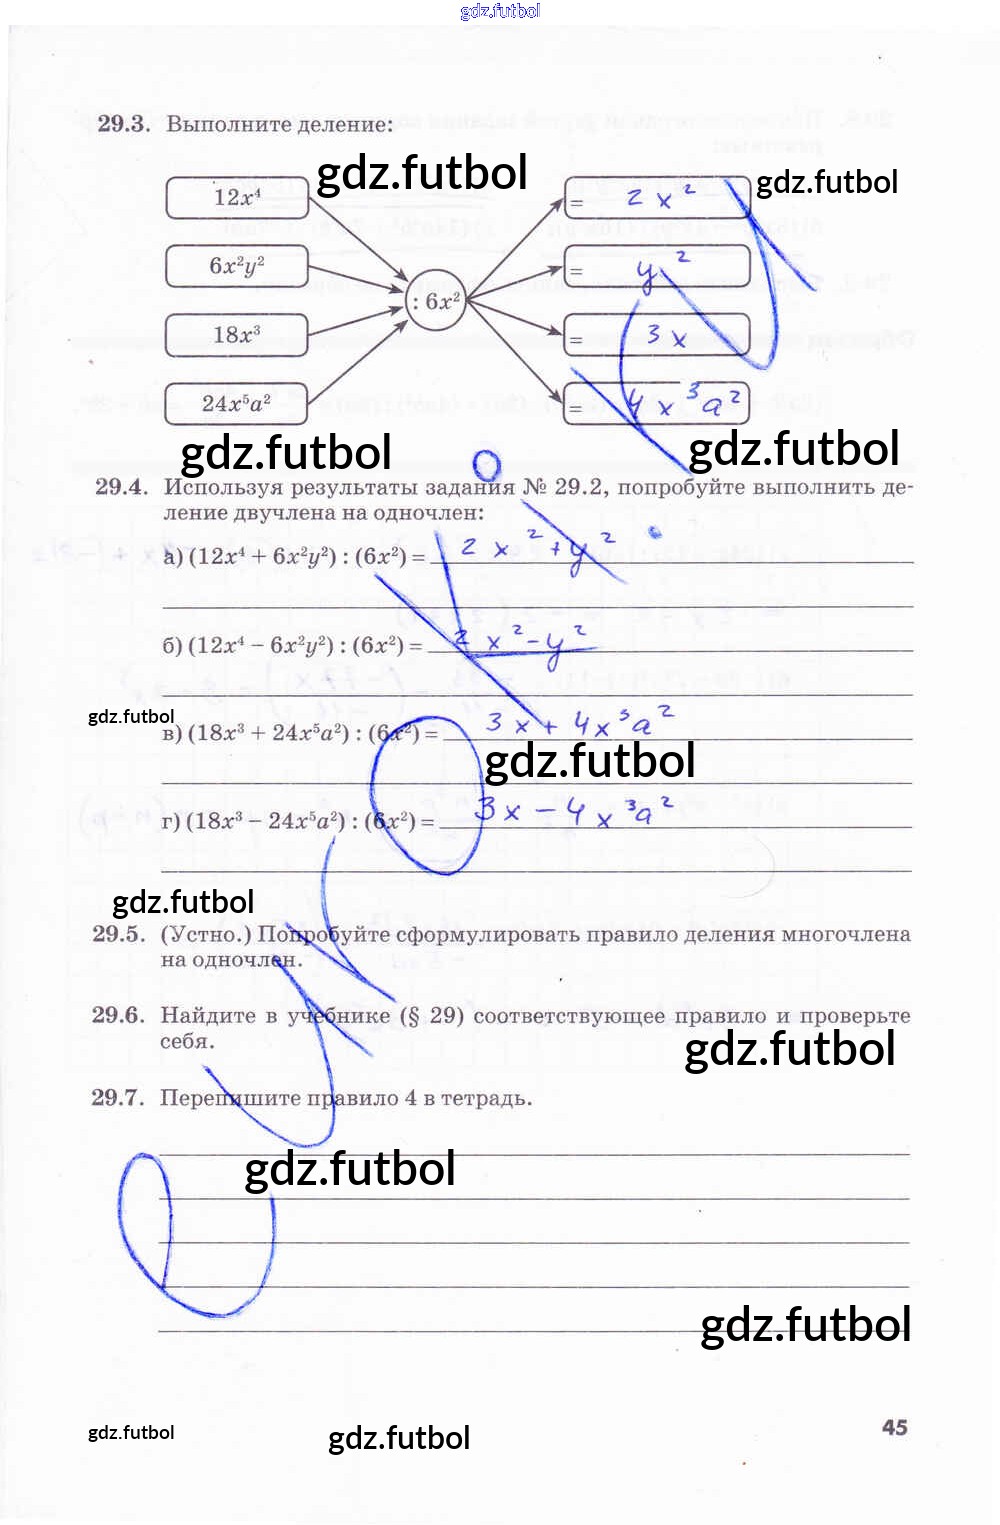 gdz.futbol
29.3. Выполните деление:
gdz.futbol
gdz.futbol
12x⁴
= 2x²
6x²y²
= y²
: 6x²
18x³
= 3x
24x⁵a²
= 4x³a²
gdz.futbol
gdz.futbol
29.4. Используя результаты задания № 29.2, попробуйте выполнить де-
ление двучлена на одночлен:
а) (12x⁴ + 6x²y²) : (6x²) = 2x² + y²
б) (12x⁴ − 6x²y²) : (6x²) = 2x² − y²
gdz.futbol
в) (18x³ + 24x⁵a²) : (6x²) = 3x + 4x³a²
gdz.futbol
г) (18x³ − 24x⁵a²) : (6x²) = 3x − 4x³a²
gdz.futbol
29.5. (Устно.) Попробуйте сформулировать правило деления многочлена
на одночлен.
29.6. Найдите в учебнике (§ 29) соответствующее правило и проверьте
себя.
gdz.futbol
29.7. Перепишите правило 4 в тетрадь.
gdz.futbol
gdz.futbol
45
gdz.futbol
gdz.futbol